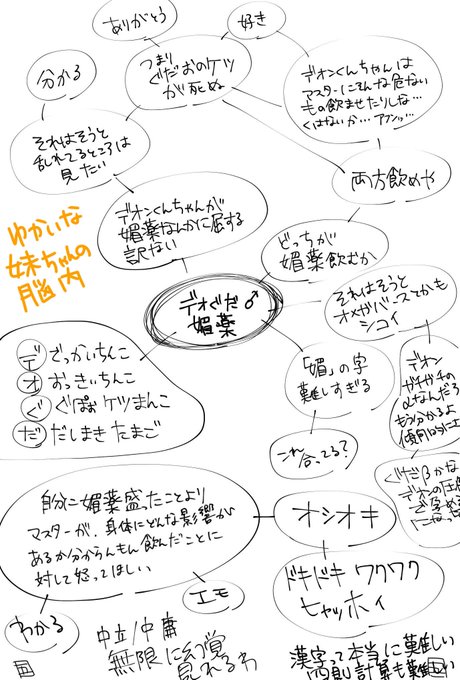 ありがとう
好き
つまり
ぐだおのケツ
が死ぬ
分かる
デオンくんちゃんは
マスターにそんな危ない
もの飲ませたりしな…
くはないか…アァンッ…
それはそうと
乱れてるところは
見たい
両方飲めや
デオンくんちゃんが
媚薬なんかに屈する
訳ない
どっちが
媚薬飲むか
ゆかいな
妹ちゃんの
脳内
デオぐだ♂
媚薬
それはそうと
オメガバースとかも
シコい
デ でっかいちんこ
オ おっきいちんこ
ぐ ぐぽぉケツまんこ
だ だしまきたまご
「媚」の字
難しすぎる
これ合ってる?
デオン
ガチガチの
αなんだろ
もう分かるよ
ぐだβかな
デオンの圧
自分に媚薬盛ったことより
マスターが、身体にどんな影響が
あるか分からんもん飲んだことに
対して怒ってほしい
オシオキ
ドキドキ ワクワク
ヒャッホィ
エモ
わかる
中立/中庸
無限に幻覚
見れるわ
漢字って本当に難しい
四則計算も難しい